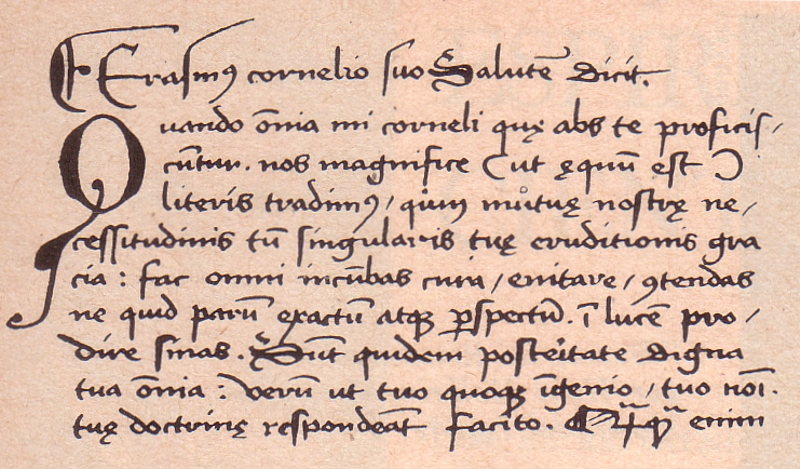 Erasmꝰ cornelio suo Salutē dicit.
Quando ōnia mi corneli quę abs te proficis/
cūtur. nos magnifice (ut ęquū est)
literis tradimꝰ/ qum mutuę nostrę ne/
cessitudinis tū singularis tuę eruditionis gra
cia: fac omni incūbas cura/ enitare/ ꝯtendas
ne quid parū exactū atqꝫ ꝑspectū. ī lucē pro/
dire sinas. Sūt quidem posteritate digna
tua ōnia: verū ut tuo quoqꝫ īgenio/ tuo noī.
tuę doctrinę respondeāt facito. enim